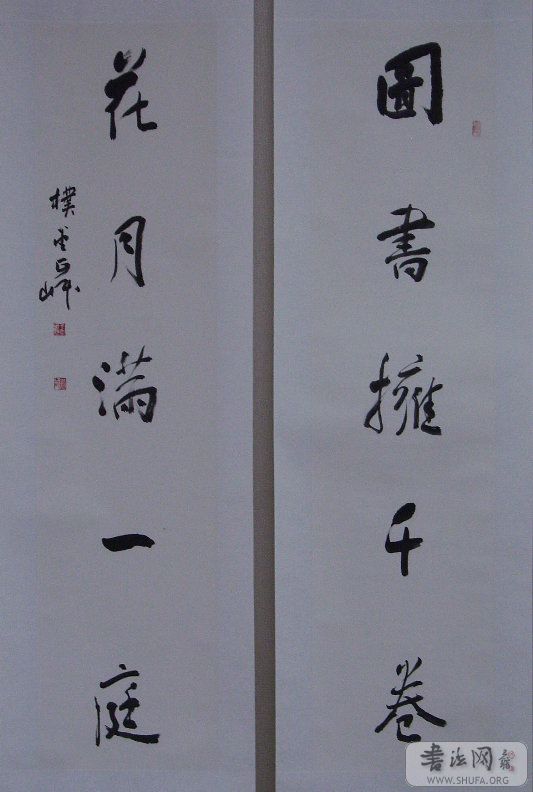 圖書擁千卷
花月滿一庭
樸堂正峰
書法网
WWW.SHUFA.ORG